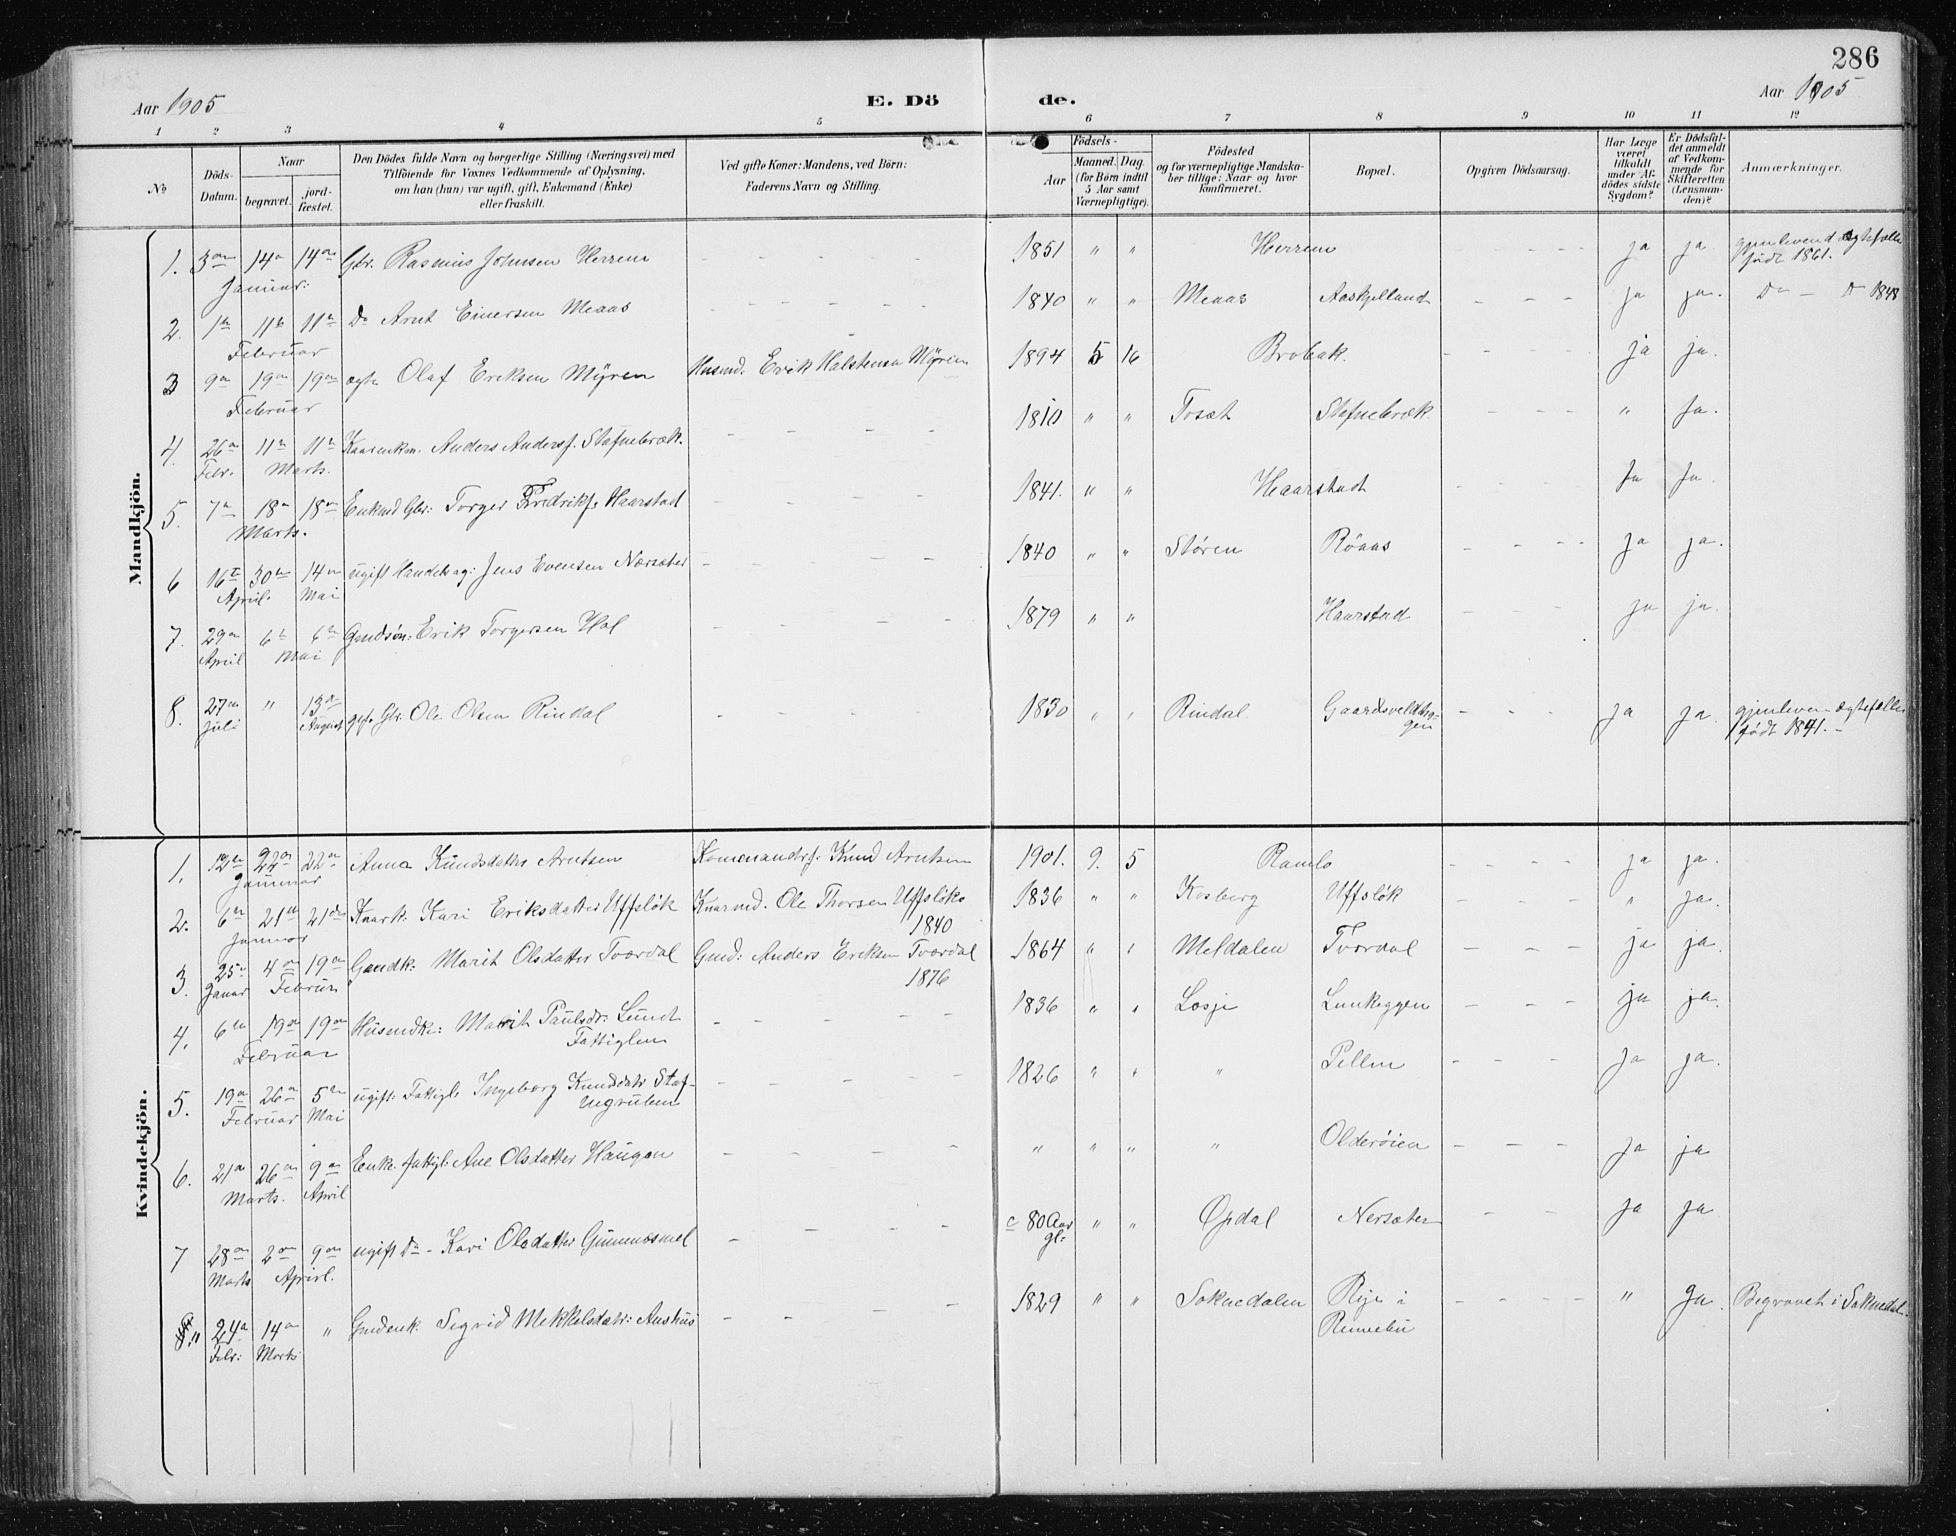 286
Aar 1905 E. Dö de. Aar 1905
1 2 3 4 5 6 7 8 9 10 11 12
No
Döds-Datum.
Naar
begravet.
jord-fæstet.
Den Dödes fulde Navn og borgerlige Stilling (Næringsvei) med
Tilföiende for Voxnes Vedkommende af Oplysning,
om han (hun) var ugift, gift, Enkemand (Enke)
eller fraskilt.
Ved gifte Koner: Mandens, ved Börn:
Faderens Navn og Stilling.
Födsels-
Aar
Maaned. Dag.
(for Börn indtil
5 Aar samt
Værnepligtige).
Födested
og for værnepligtige Mandska-
ber tillige: Naar og hvor
konfirmeret.
Bopæl.
Opgiven Dödsaarsag.
Har Læge
været
tilkaldt
under Af-
dödes sidste
Sygdom?
Er Dödsfal-
det anmeldt
af Vedkom-
mende for
Skifteretten
(Lensman-
den)?
Anmærkninger.
Mandkjön.
1. 3die 14de 14de Gbr. Rasmus Johnsen Herrem 1851 " " Herrem ja ja gjenlevend ægtefælle
Januar: født 1861.
2. 1ste 11te 11te Do Arnt Einersen Meaas 1840 " " Meaas Aaskjelland ja ja. Do – Do 1848
Februar
3 9de 19de 19de ægte Olaf Eriksen Myren Husmd. Erik Halstensen Myren 1894 5 16 Brobak. ja ja.
Februar
4. 26de 11te 11te Kaarenkm. Anders Andersf. Stafnebræk. 1810 " " Tosæt Stafnebræk. " Ja.
Febr. Marts.
5. 7de 18de 18de Enkmd Gbr: Torger Fredriks. Haarstad 1841. " " Haarstad Ja Ja.
Marts.
6 16de 30te 14de ugift Handelsag: Jens Evensen Nærsæter 1840 " " Støren Röaas ja ja.
April. Mai
7. 29de 6te 6te Gmdsøn: Erik Torgersen Hol 1879 " " Haarstad ja ja.
April Mai
8. 27de " 13de gift Gbr: Ole Olsen Rindal 1830 " " Rindal. Gaardsveldhag- ja ja. gjenleven- ægtefælle
Juli August gen født 1841. –
Kvindekjön.
1. 12te 22de 22de Anna Knudsdatter Arntsen Knud Arntsen 1901. 9. 5 Ramlo ja ja.
Januar
2. 6te 21de 21de Kaark. Kari Eriksdatter Uffsløk Kaarmd. Ole Thorsen Uffsløk 1836 " " Kosberg Uffsløk " ja.
Januar 1840
3. 25de 4de 19de Gaardk. Marit Olsdatter Tværdal Gmd: Anders Eriksen Tværdal 1864 " " Meldalen Tværdal ja ja.
Januar Februar 1876
4. 6te 19de 19de Husmdke: Marit Paulsdr: Lund 1836 " " Losje Lunkeggen ja ja.
Februar Fattiglem
5. 19de 26de 5te ugift: Fattigl. Ingeborg Knudsdatr Staf- 1826 " " " Pellen ja ja.
Februar Mai ngruben
6. 21de 26de 9de Enke. fattigl: Ane Olsdatter Haugen " " " " Olderøien ja ja
Marts. April
7 28de 2den 9de ugift Do – Kari Olsdatter Gunnesmel c 80 Aar gl. " " Opdal Nersæter ja ja.
Marts April.
8. " 24de 14de " Gmdenk. Sigrid Mikkelsdatr: Aashus 1829 " " Soknedalen Rye i " Ja. Begravet i Soknedal.
Febr: Marts Rennebu